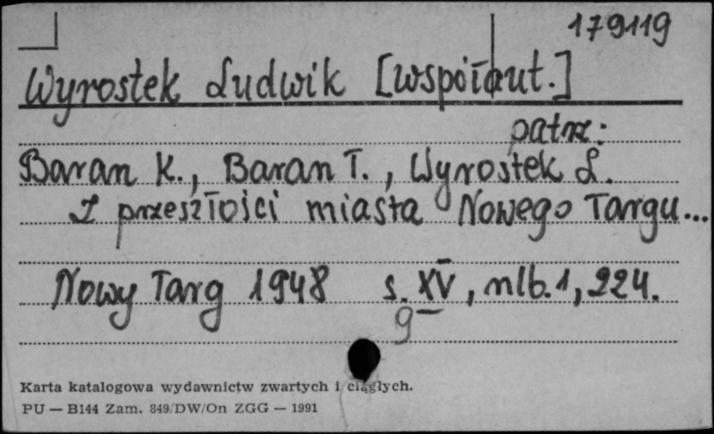 179119
Wyrostek Ludwik [współaut.]
patrz:
Baran K., Baran T., Wyrostek L.
Z przeszłości miasta Nowego Targu...
Nowy Targ 1948 s. XV, nlb. 1, 224.
9
Karta katalogowa wydawnictw zwartych i ciągłych.
PU — B144 Zam. 849/DW/On ZGG — 1991